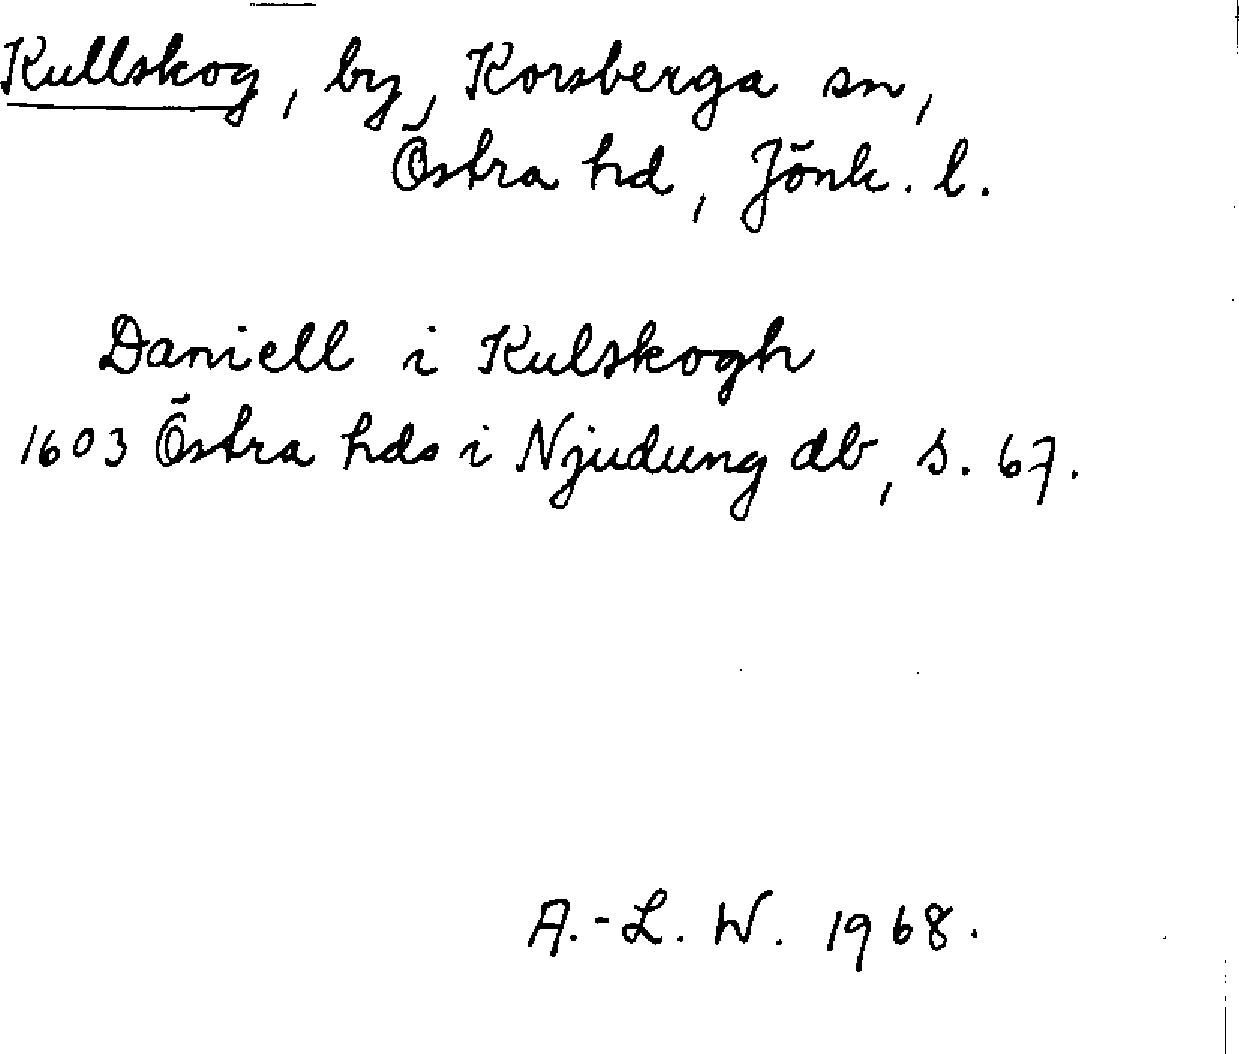 Kullskog, by, Korsberga sn,
Östra hd, Jönk. l.
Daniell i Kulskogh
1603 Östra hds i Njudung db, s. 67.
A.-L. W. 1968.